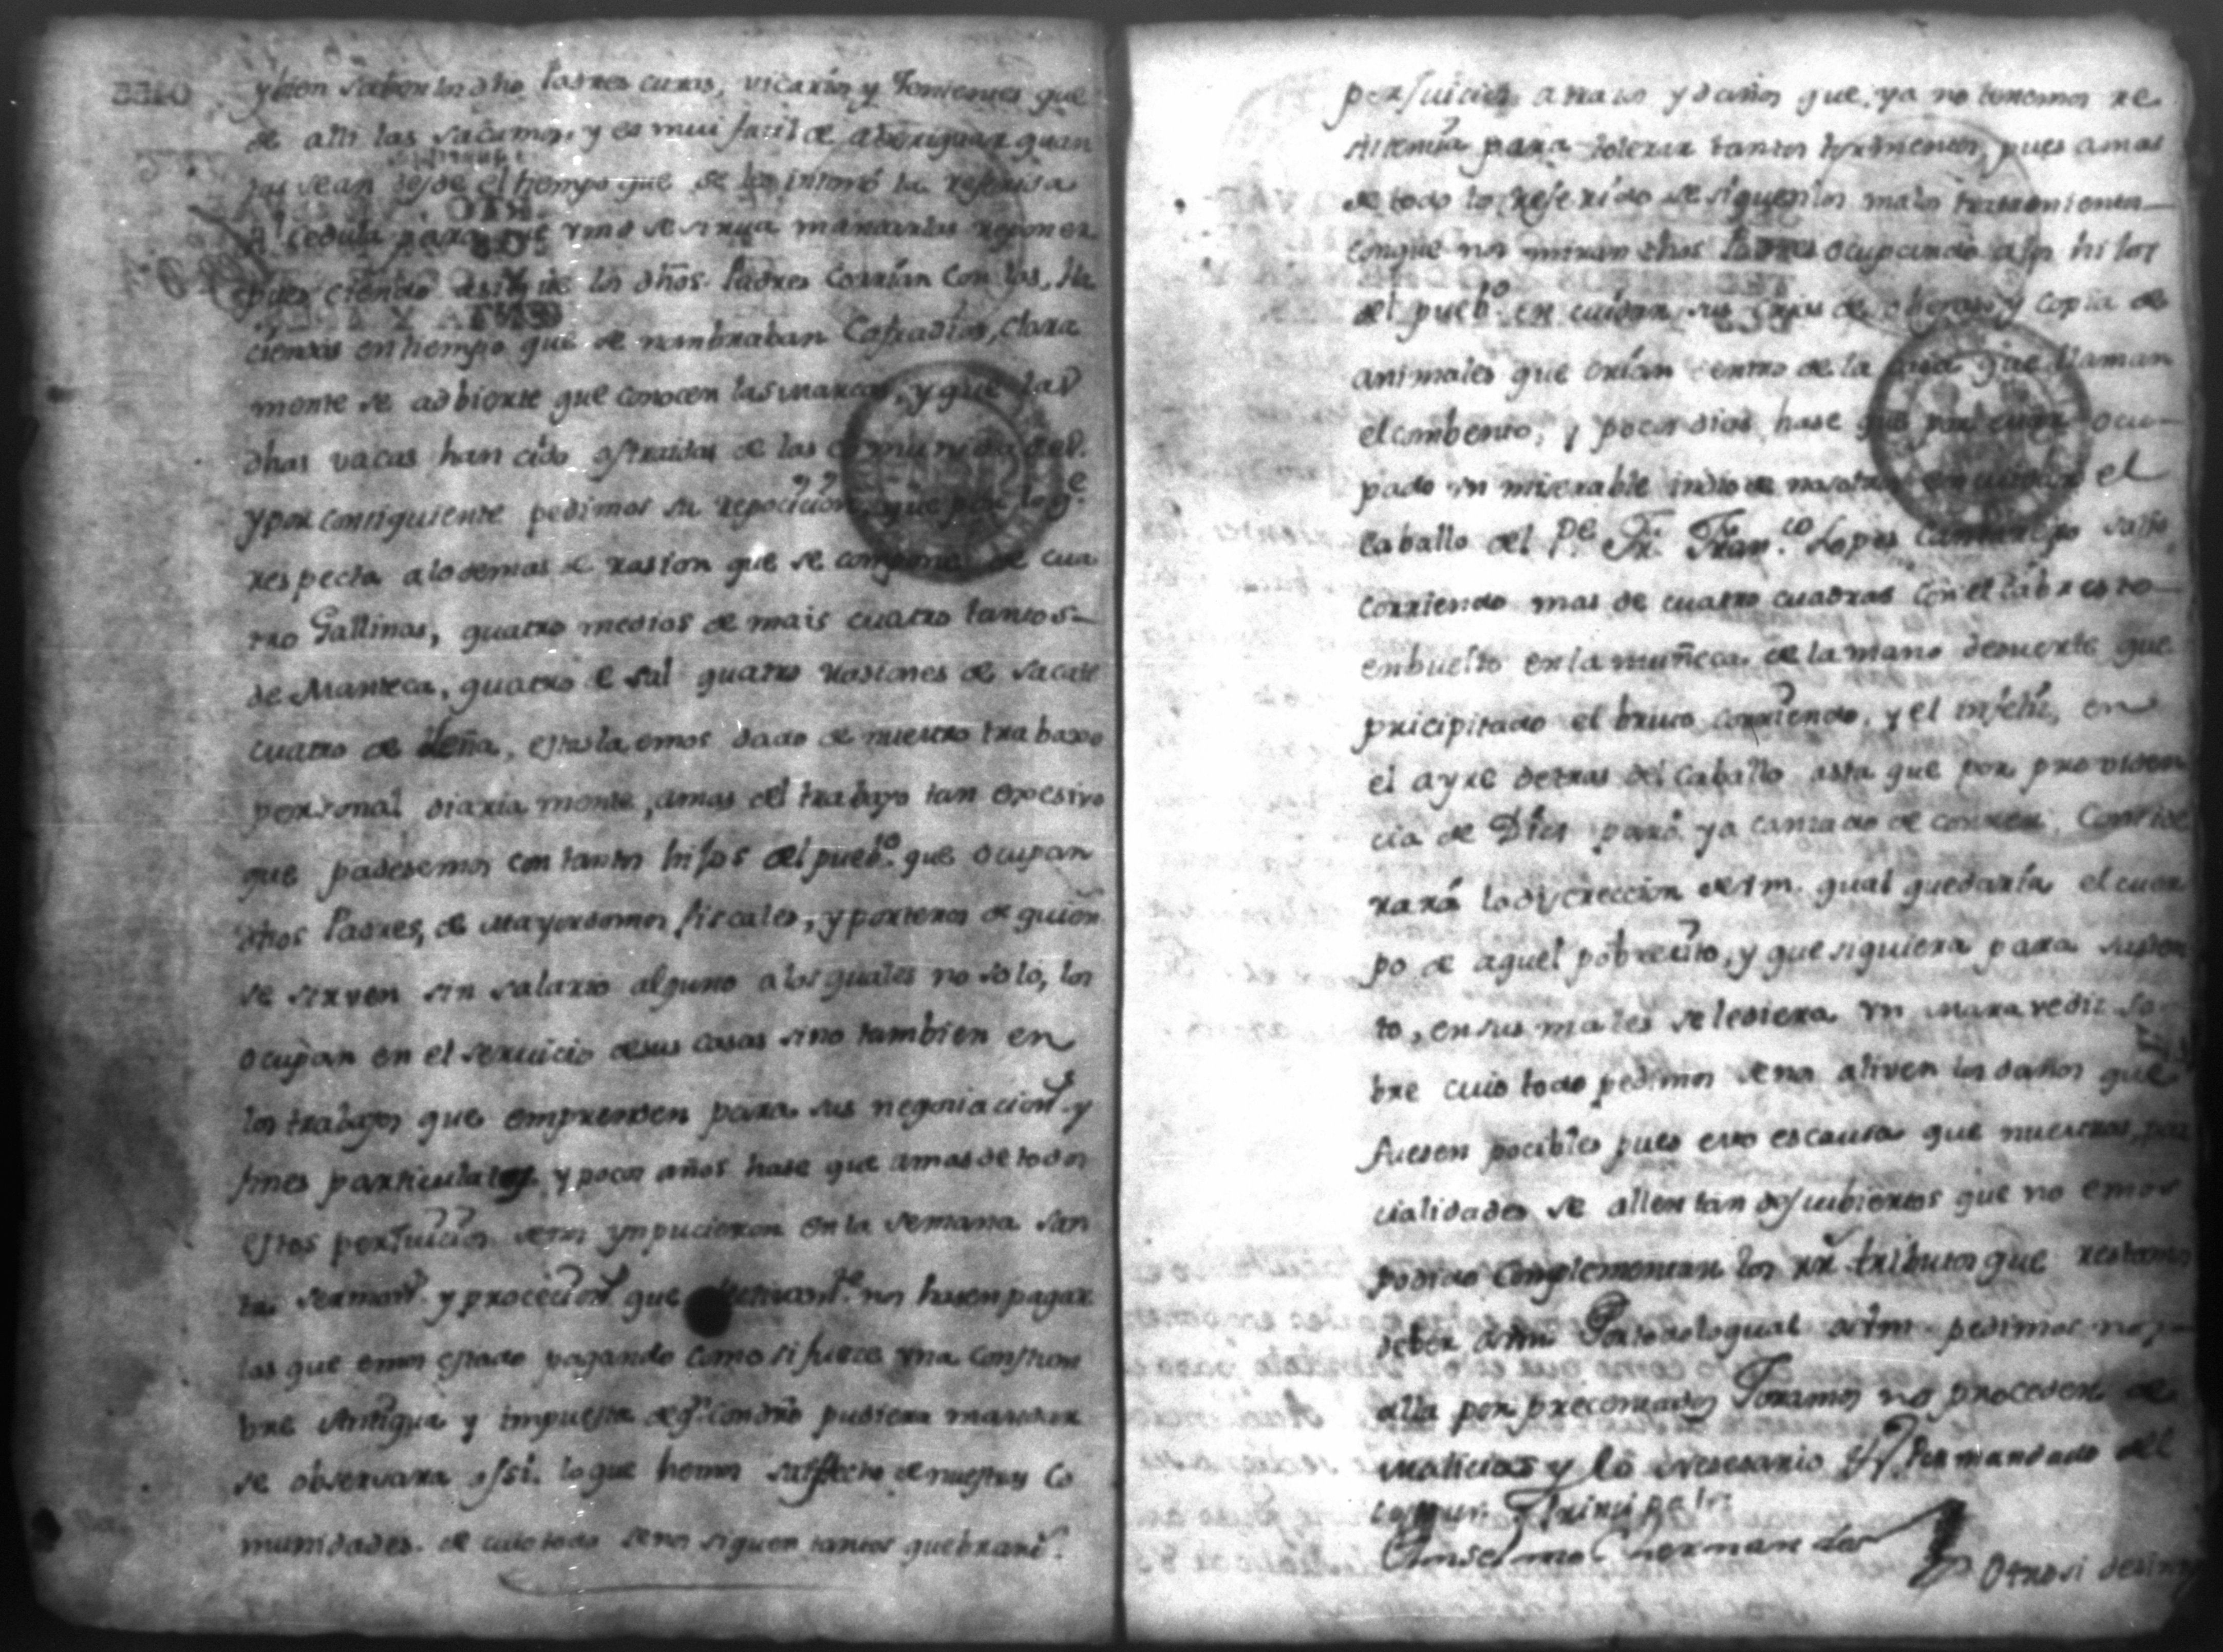 y bien saben los dho Padres curas, vicarios y Tenientes que
de alli las sacamos, y es mui facil de aberiguar quan
tas sean desde el tiempo que se les intimó la referida
Rl cedula para que vmd se sirva mandarlas reponer
pues ciendo asi que los dhos Padres corrian con las Ha
ciendas en tiempo que se nombraban Cofradias, clara
mente se adbierte que conocen las marcas, y que las
dhas vacas han cido estraidas de las comunidades.
y por consiguiente pedimos su repocicion, que por lo qe
respecta a lo demas de rasion que se compone de cua
tro Gallinas, quatro medios de mais cuatro tantos
de Manteca, quatro de sal quatro rasiones de sacate
cuatro de Leña, esta la emos dado de nuestro trabaxo
personal diaria mente, amas del trabajo tan exesivo
que padesemos con tantos hijos del puebo que ocupan
dhos Padres, de Mayordomos fiscales, y porteros de quien
se sirven sin salario alguno a los quales no solo, los
ocupan en el servicio de sus casas sino tambien en
los trabajos que emprenden para sus negociacions y
fines particulares, y pocos años hase que amas de todos
estos perjuicios se nos ympucieron en la semana san
ta sermons y procecions que nos hasen pagar
las que emos estado pagando como si fuera vna constum
bre Antigua y impuesta de qn con dro pudiera mandar
se observara assi. lo que hemos satisfecho de nuestras Co
munidades. de cuio todo se nos siguen tantos quebrants.
perjuicios atrasos y daños que, ya no tenemos re
sistencia para tolerar tantos tormentos, pues amas
de todo lo referido se siguen los malos tratamientos
con que nos miran dhos Padres ocupando a los hijos
del puebo en cuidar sus crias de obejas, y copia de
animales que crian dentro de la casa que llaman
el combento, y pocos dias hase que por estar ocu
pado un miserable indio de nosotros en cuidar el
caballo del Pe Fr. Franco Lopes salio
corriendo mas de cuatro cuadras con el cabresto
enbuelto en la muñeca de la mano desuerte que
pricipitado el bruto corriendo, y el infelis, en
el ayre detras del caballo asta que por providen
cia de Dios paró ya cansado de correr. Concide
rará la discreccion de vm. qual quedaria el cuer
po de aquel pobrecito, y que siquiera para susten
to, en sus males se le diera vn maravedis so
bre cuio todo pedimos se nos aliven los daños que
fuesen pocibles pues esto es causa que nuestras par
cialidades se allen tan descubiertos que no emos
podido complementar los rs tributos que restamos
deber Por todo lo qual a vm. pedimos nos
alla por precentados Juramos no proceder de
malicias y lo nesesario &a Por mandado del
comun y Principales
Anselmo Chernandes
Otrosi desimos